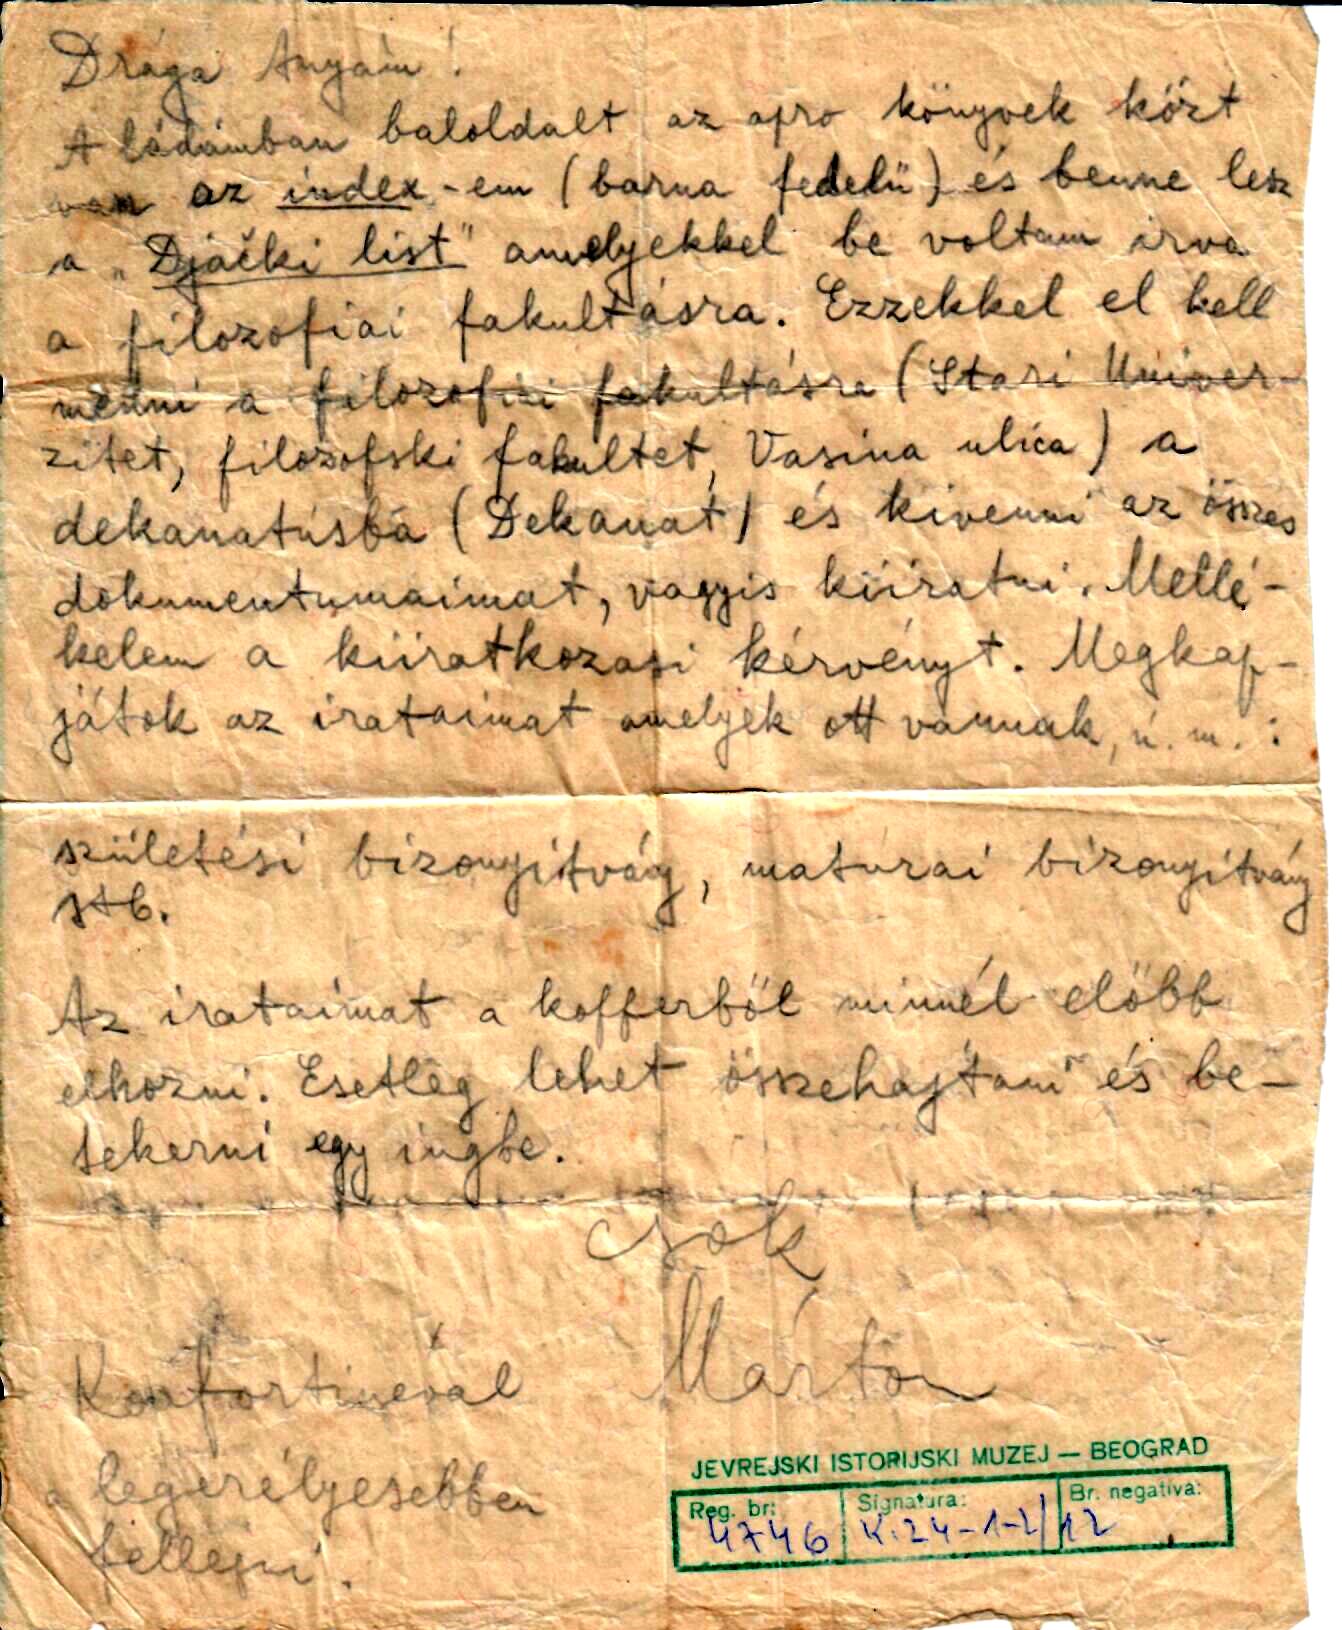 Drága Anyám!
A ládámban baloldalt az apro könyvek közt
van az index-em (barna fedelü) és benne lesz
a „Djački list" amelyekkel be voltam irva
a filozofiai fakultásra. Ezzekkel el kell
menni a filozofiai fakultásra (Stari Univer-
zitet, filozofski fakultet, Vasina ulica) a
dekanatusba (Dekanat) és kivenni az összes
dokumentumaimat, vagyis kiiratni. Mellé-
kelem a kiiratkozasi kérvényt. Megkap-
játok az irataimat amelyek ott vannak, ú. m. :
születési bizonyitvány, maturai bizonyitvány
stb.
Az irataimat a kofferből minnél előbb
elhozni. Esetleg lehet összehajtani és be-
tekerni egy ingbe.
csok
Márton
Konfortinéval
a legerélyesebben
fellepni.
JEVREJSKI ISTORIJSKI MUZEJ — BEOGRAD
Reg. br: 4746 Signatura: K.24-1-2/12 Br. negativa: